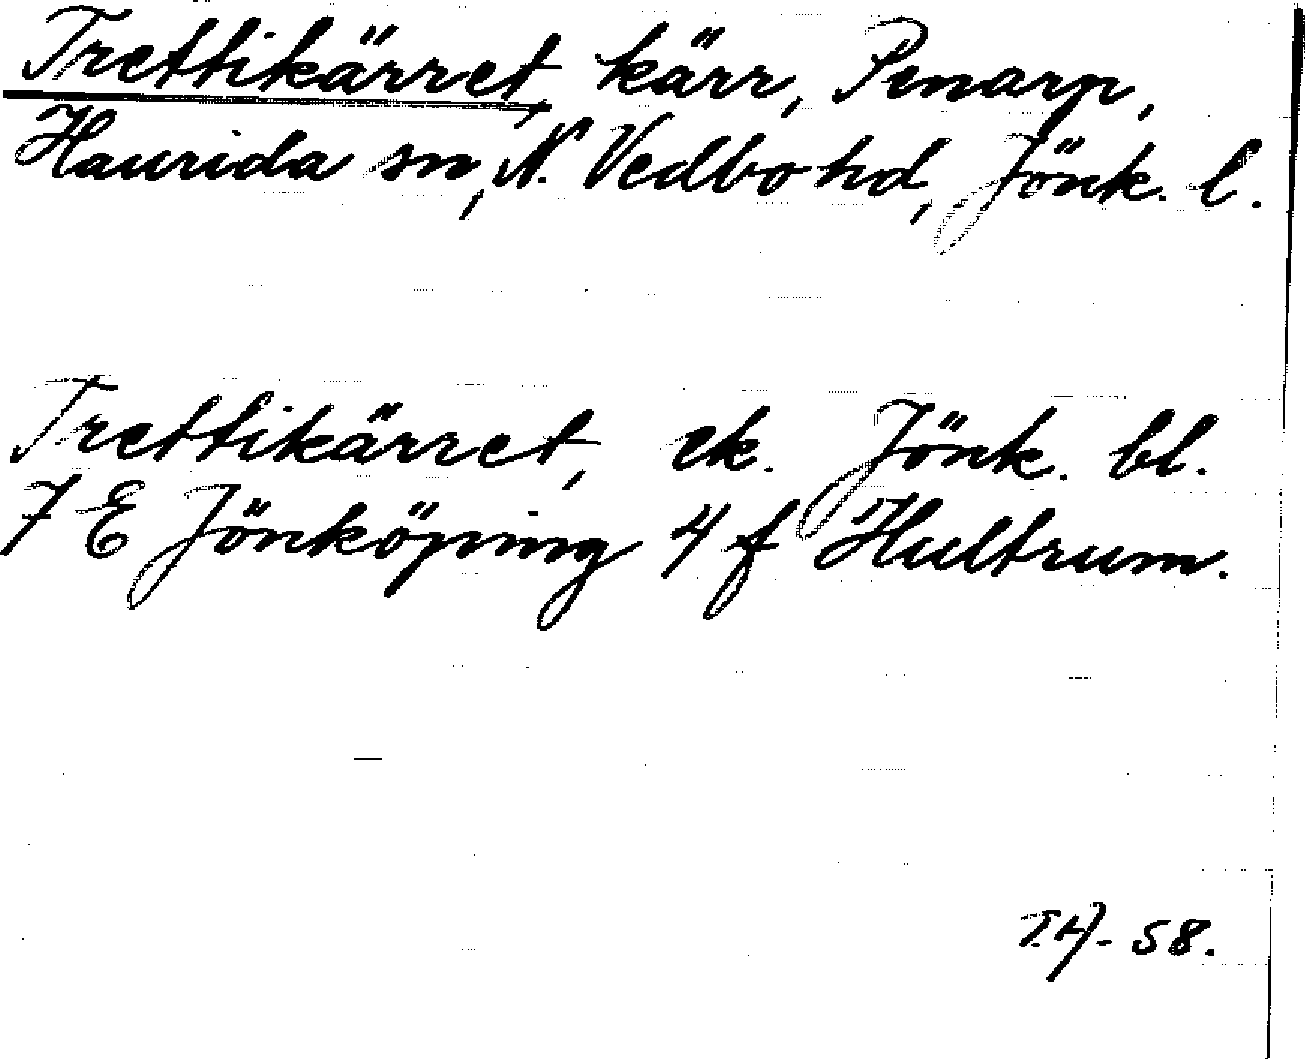 Trettikärret, kärr, Penarp,
Haurida sn, N. Vedbo hd, Jönk. l.
Trettikärret, ek. Jönk. bl.
7 E Jönköping 4 f Hultrum.
58.